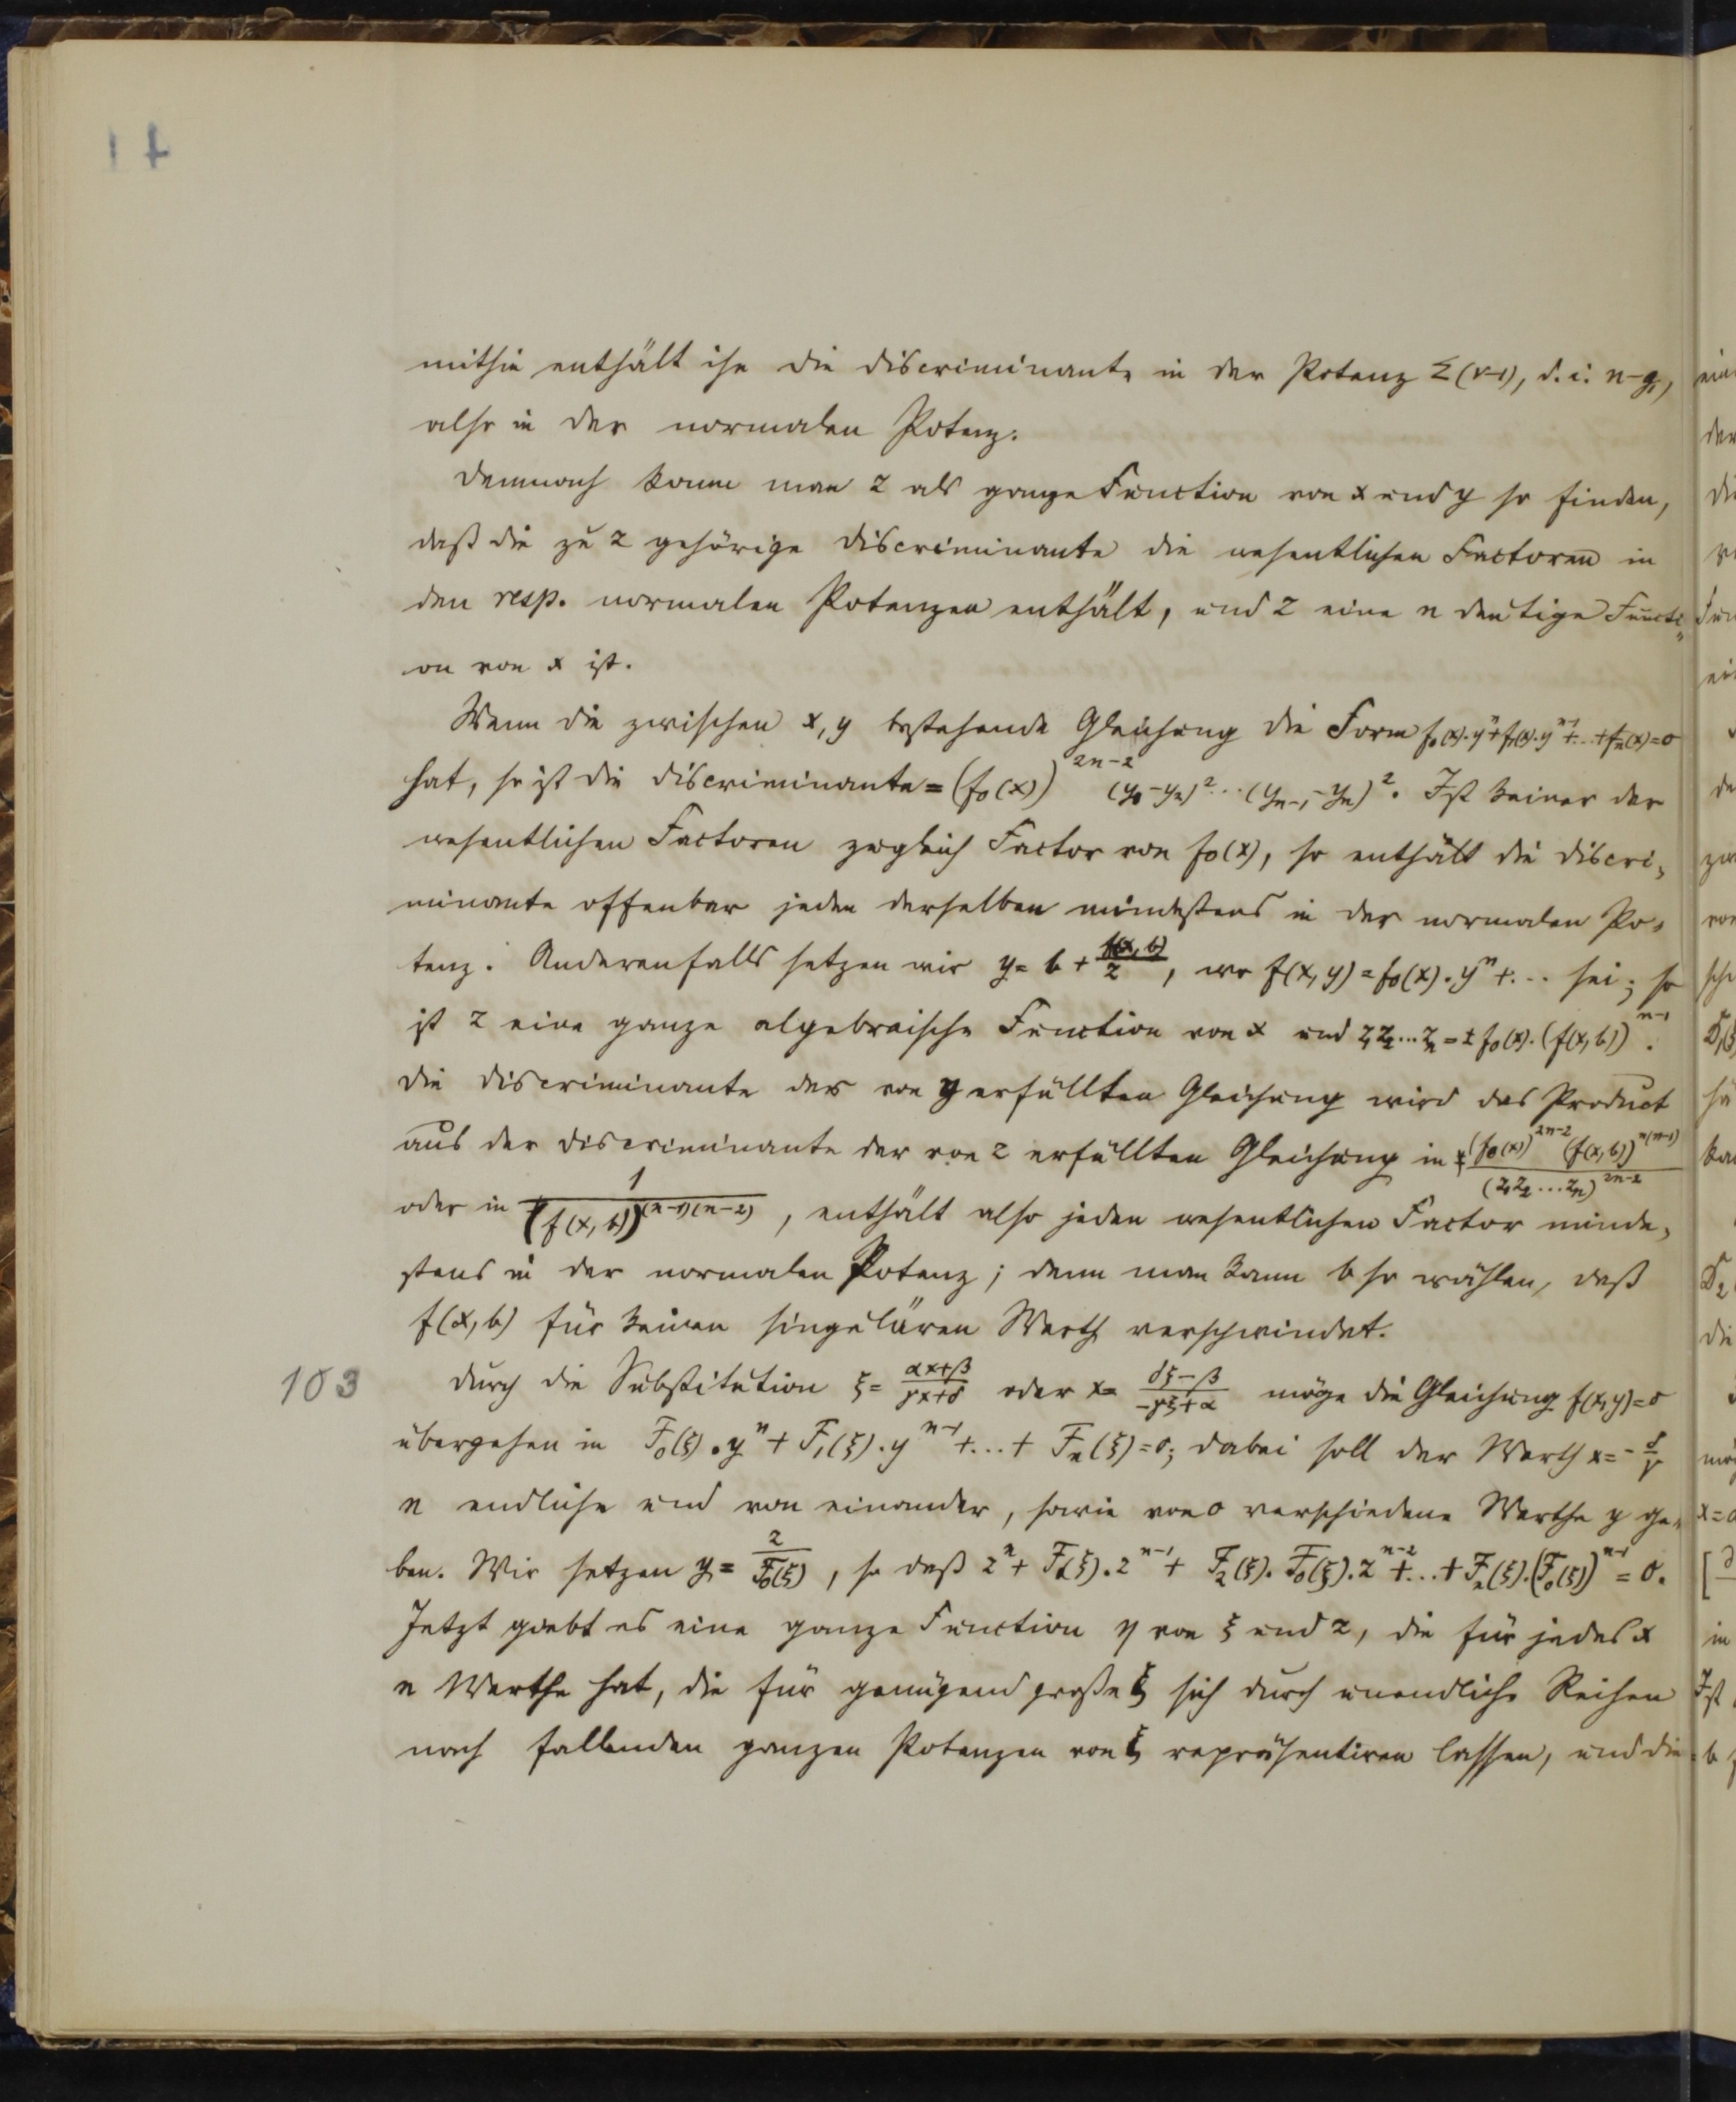 mithin enthält ihn die Discriminante in der Potenz Σ(r-1), d. i. n-g₁,
also in der normalen Potenz.
Demnach kann man z als ganze Function von x und y so finden,
daß die zu z gehörige Discriminante die wesentlichen Factoren in
den resp. normalen Potenzen enthält, und z eine n deutige Functi„
on von x ist.
Wenn die zwischen x, y bestehende Gleichung die Form f₀(x)·yⁿ+f₁(x)·yⁿ⁻¹+...+fₙ(x)=0
hat, so ist die Discriminante = (f₀(x))²ⁿ⁻² (y₁-y₂)²...(yₙ₋₁-yₙ)². Ist keiner der
wesentlichen Factoren zugleich Factor von f₀(x), so enthält die Discri„
minante offenbar jeden derselben mindestens in der normalen Po„
tenz. Anderenfalls setzen wir y = b + f(x,b)/z, wo f(x,y) = f₀(x)·yⁿ+... sei; so
ist z eine ganze algebraische Function von x und z₁z₂...zₙ = ± f₀(x)·(f(x,b))ⁿ⁻¹.
Die Discriminante der von y erfüllten Gleichung wird das Product
aus der Discriminante der von z erfüllten Gleichung in (f₀(x))²ⁿ⁻² (f(x,b))ⁿ⁽ⁿ⁻¹⁾/(z₁z₂...zₙ)²ⁿ⁻²
oder in 1/(f(x,b))⁽ⁿ⁻¹⁾⁽ⁿ⁻²⁾, enthält also jeden wesentlichen Factor minde„
stens in der normalen Potenz; denn man kann b so wählen, daß
f(x,b) für keinen singulären Werth verschwindet.
103 Durch die Substitution ξ = (αx+β)/(γx+δ) oder x = (δξ-β)/(-γξ+α) möge die Gleichung f(x,y)=0
übergehen in F₀(ξ)·yⁿ + F₁(ξ)·yⁿ⁻¹+...+ Fₙ(ξ)=0; dabei soll der Werth x = -δ/γ
n endliche und von einander, sowie von 0 verschiedene Werthe y ge„
ben. Wir setzen y = z/F₀(ξ), so daß zⁿ + F₁(ξ)·zⁿ⁻¹ + F₂(ξ)·F₀(ξ)·zⁿ⁻²+...+Fₙ(ξ)·(F₀(ξ))ⁿ⁻¹ = 0.
Jetzt giebt es eine ganze Function η von ξ und z, die für jedes x
n Werthe hat, die für genügend große ξ sich durch unendliche Reihen
nach fallenden ganzen Potenzen von ξ repräsentiren lassen, und die